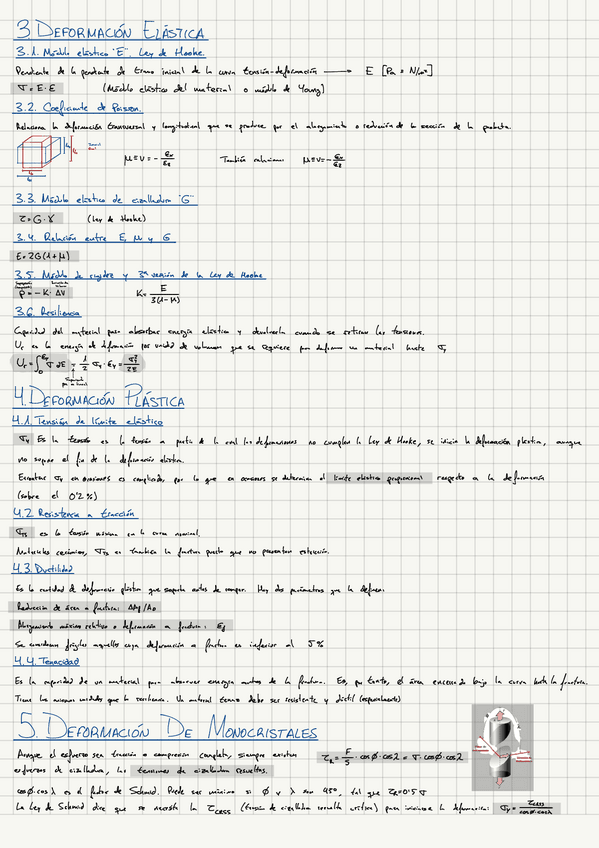 3. DEFORMACIÓN ELÁSTICA
3.1. Módulo elástico "E". Ley de Hooke.
Pendiente de la pendiente de tramo inicial de la curva tensión-deformación → E [Pa = N/m²]
σ = E·ε (Módulo elástico del material o módulo de Young)
3.2. Coeficiente de Poisson.
Relaciona la deformación transversal y longitudinal que se produce por el alargamiento o reducción de la sección de la probeta.
μ ≡ ν = - εx/εz También relaciona μ ≡ ν = - εy/εz
3.3. Módulo elástico de cizalladura "G"
τ = G·γ (Ley de Hooke)
3.4. Relación entre E, μ y G
E = 2G(1+μ)
3.5. Módulo de rigidez y 3ª versión de la Ley de Hooke
P = - K · ΔV K = E / 3(1-μ)
3.6. Resiliencia
Capacidad del material para absorber energía elástica y devolverla cuando se retiran las tensiones.
Ur es la energía de deformación por unidad de volumen que se requiere para deformar un material hasta σy
4. DEFORMACIÓN PLÁSTICA
4.1. Tensión de límite elástico
σy Es la tensión es la tensión a partir de la cual las deformaciones no cumplen la Ley de Hooke, se inicia la deformación plástica, aunque
no supone el fin de la deformación elástica.
Encontrar σy en ocasiones es complicado, por lo que en ocasiones se determina el límite elástico proporcional respecto a la deformación
(sobre el 0'2%)
4.2 Resistencia a tracción
σTS es la tensión máxima en la curva nominal.
Materiales cerámicos, σTS es también la fractura puesto que no presentan estricción.
4.3. Ductilidad
Es la cantidad de deformación plástica que soporta antes de romper. Hay dos parámetros que la definen:
Reducción de área a fractura: ΔAf/A0
Alargamiento máximo relativo o deformación a fractura: εf
Se consideran frágiles aquellos cuya deformación a fractura es inferior al 5%
4.4. Tenacidad
Es la capacidad de un material para absorver energía antes de la fractura. Es, por tanto, el área encerrada bajo la curva hasta la fractura.
Tiene las mismas unidades que la resiliencia. Un material tenaz debe ser resistente y dúctil (especialmente)
5. DEFORMACIÓN DE MONOCRISTALES
Aunque el esfuerzo sea tracción o compresión completa, siempre existen τR = F/S · cosϕ·cosλ = σ·cosϕ·cosλ
esfuerzos de cizalladura, las tensiones de cizalladura resueltas.
cosϕ·cosλ es el factor de Schmid. Puede ser máximo si ϕ y λ son 45º, tal que τR=0'5σ
La Ley de Schmid dice que se necesita la τCRSS (tensión de cizalladura resuelta crítica) para iniciarse la deformación: σy = τCRSS / cosϕ·cosλ